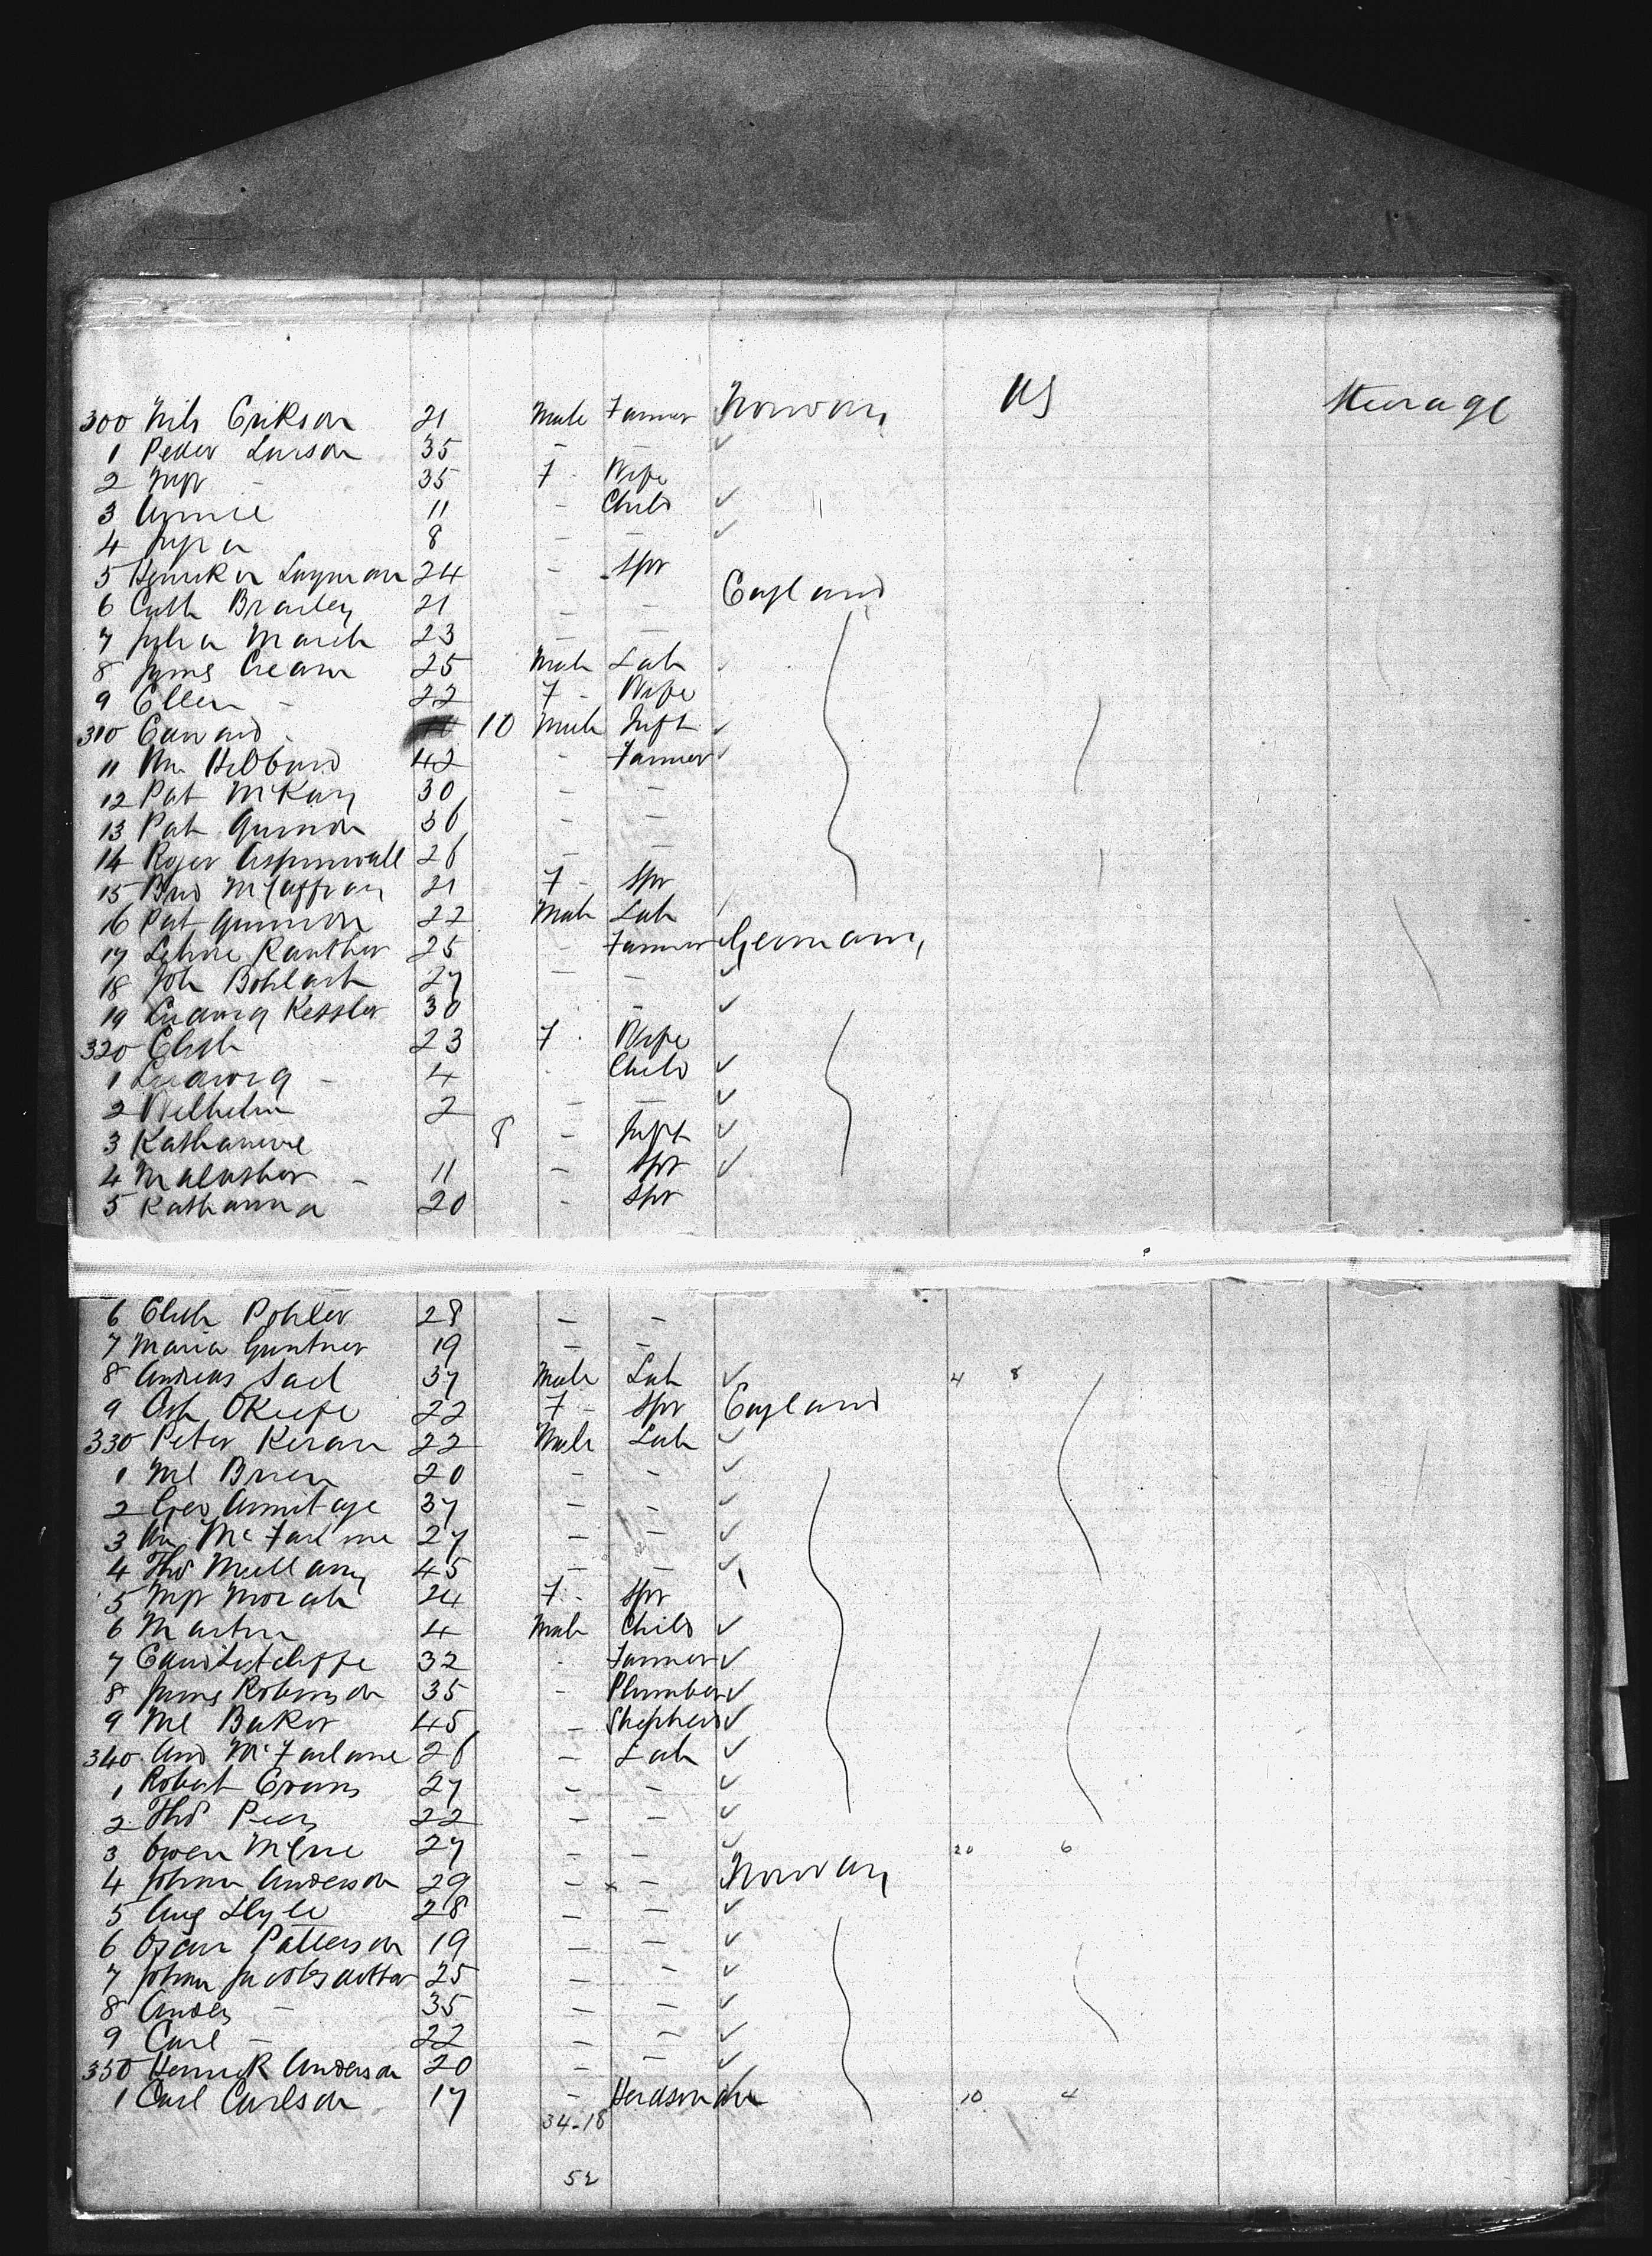 300 Nils Erikson 21 Male Farmer Norway US Steerage
1 Peder Larson 35 - - ✓
2 Mgr - 35 F - Wife
3 Annie 11 - Child ✓
4 8 - - ✓
5 Henrika Layman 24 - Spr
6 Cath Brailey 21 - - England
7 Julia March 23 - -
8 James Crean 25 Male Lab
9 Ellen - 22 F - Wife
310 Edward - 10 Male Inft ✓
11 Wm Hibbard 42 - Farmer ✓
12 Pat McKay 30 - -
13 Pat Gunnon 36 - -
14 Roger Aspinwall 26 - -
15 Brid McCaffray 21 F - Spr
16 Pat Gunnon 22 Male Lab
17 Kanther 25 - Farmer Germany
18 Joh Bohlach 27 - - ✓
19 Ludwig Kessler 30 - ✓
320 Elisth 23 F - Wife
1 Ludwig - 4 Child ✓
2 Wilhelm 2 - - ✓
3 Katharine 8 - Inft ✓
4 - 11 - Spr ✓
5 Katharina 20 - Spr
6 Elisth Pohler 28 - -
7 Maria Guntner 19 - -
8 Andreas Sad 37 Male Lab ✓ 4 8
9 Cath OKeefe 22 F - Spr England
330 Peter Keran 22 Male Lab ✓
1 Ml Brien 20 - - ✓
2 Geo Armitage 37 - - ✓
3 Wm McFarlane 27 - - ✓
4 Thos Mullany 45 - - ✓
5 Mgt Morah 24 F - Spr
6 Martin 4 Male Child ✓
7 Edwd Sutcliffe 32 - Farmer ✓
8 James Robinson 35 - Plumber ✓
9 Ml Baker 45 - Shepherd ✓
340 And McFarlane 26 - Lab ✓
1 Robert Evans 27 - - ✓
2 Thos 22 - - ✓
3 Owen 27 - - ✓ 20 6
4 Johan Anderson 29 - - Norway
5 Aug 28 - - ✓
6 Oscar Patterson 19 - - ✓
7 Johan Jacobsdatter 25 - - ✓
8 Anders - 35 - - ✓
9 Carl - 22 - - ✓
350 Henrick Anderson 20 - - ✓
1 Carl Carlson 17 - Herdsman 10 4
34-18
52